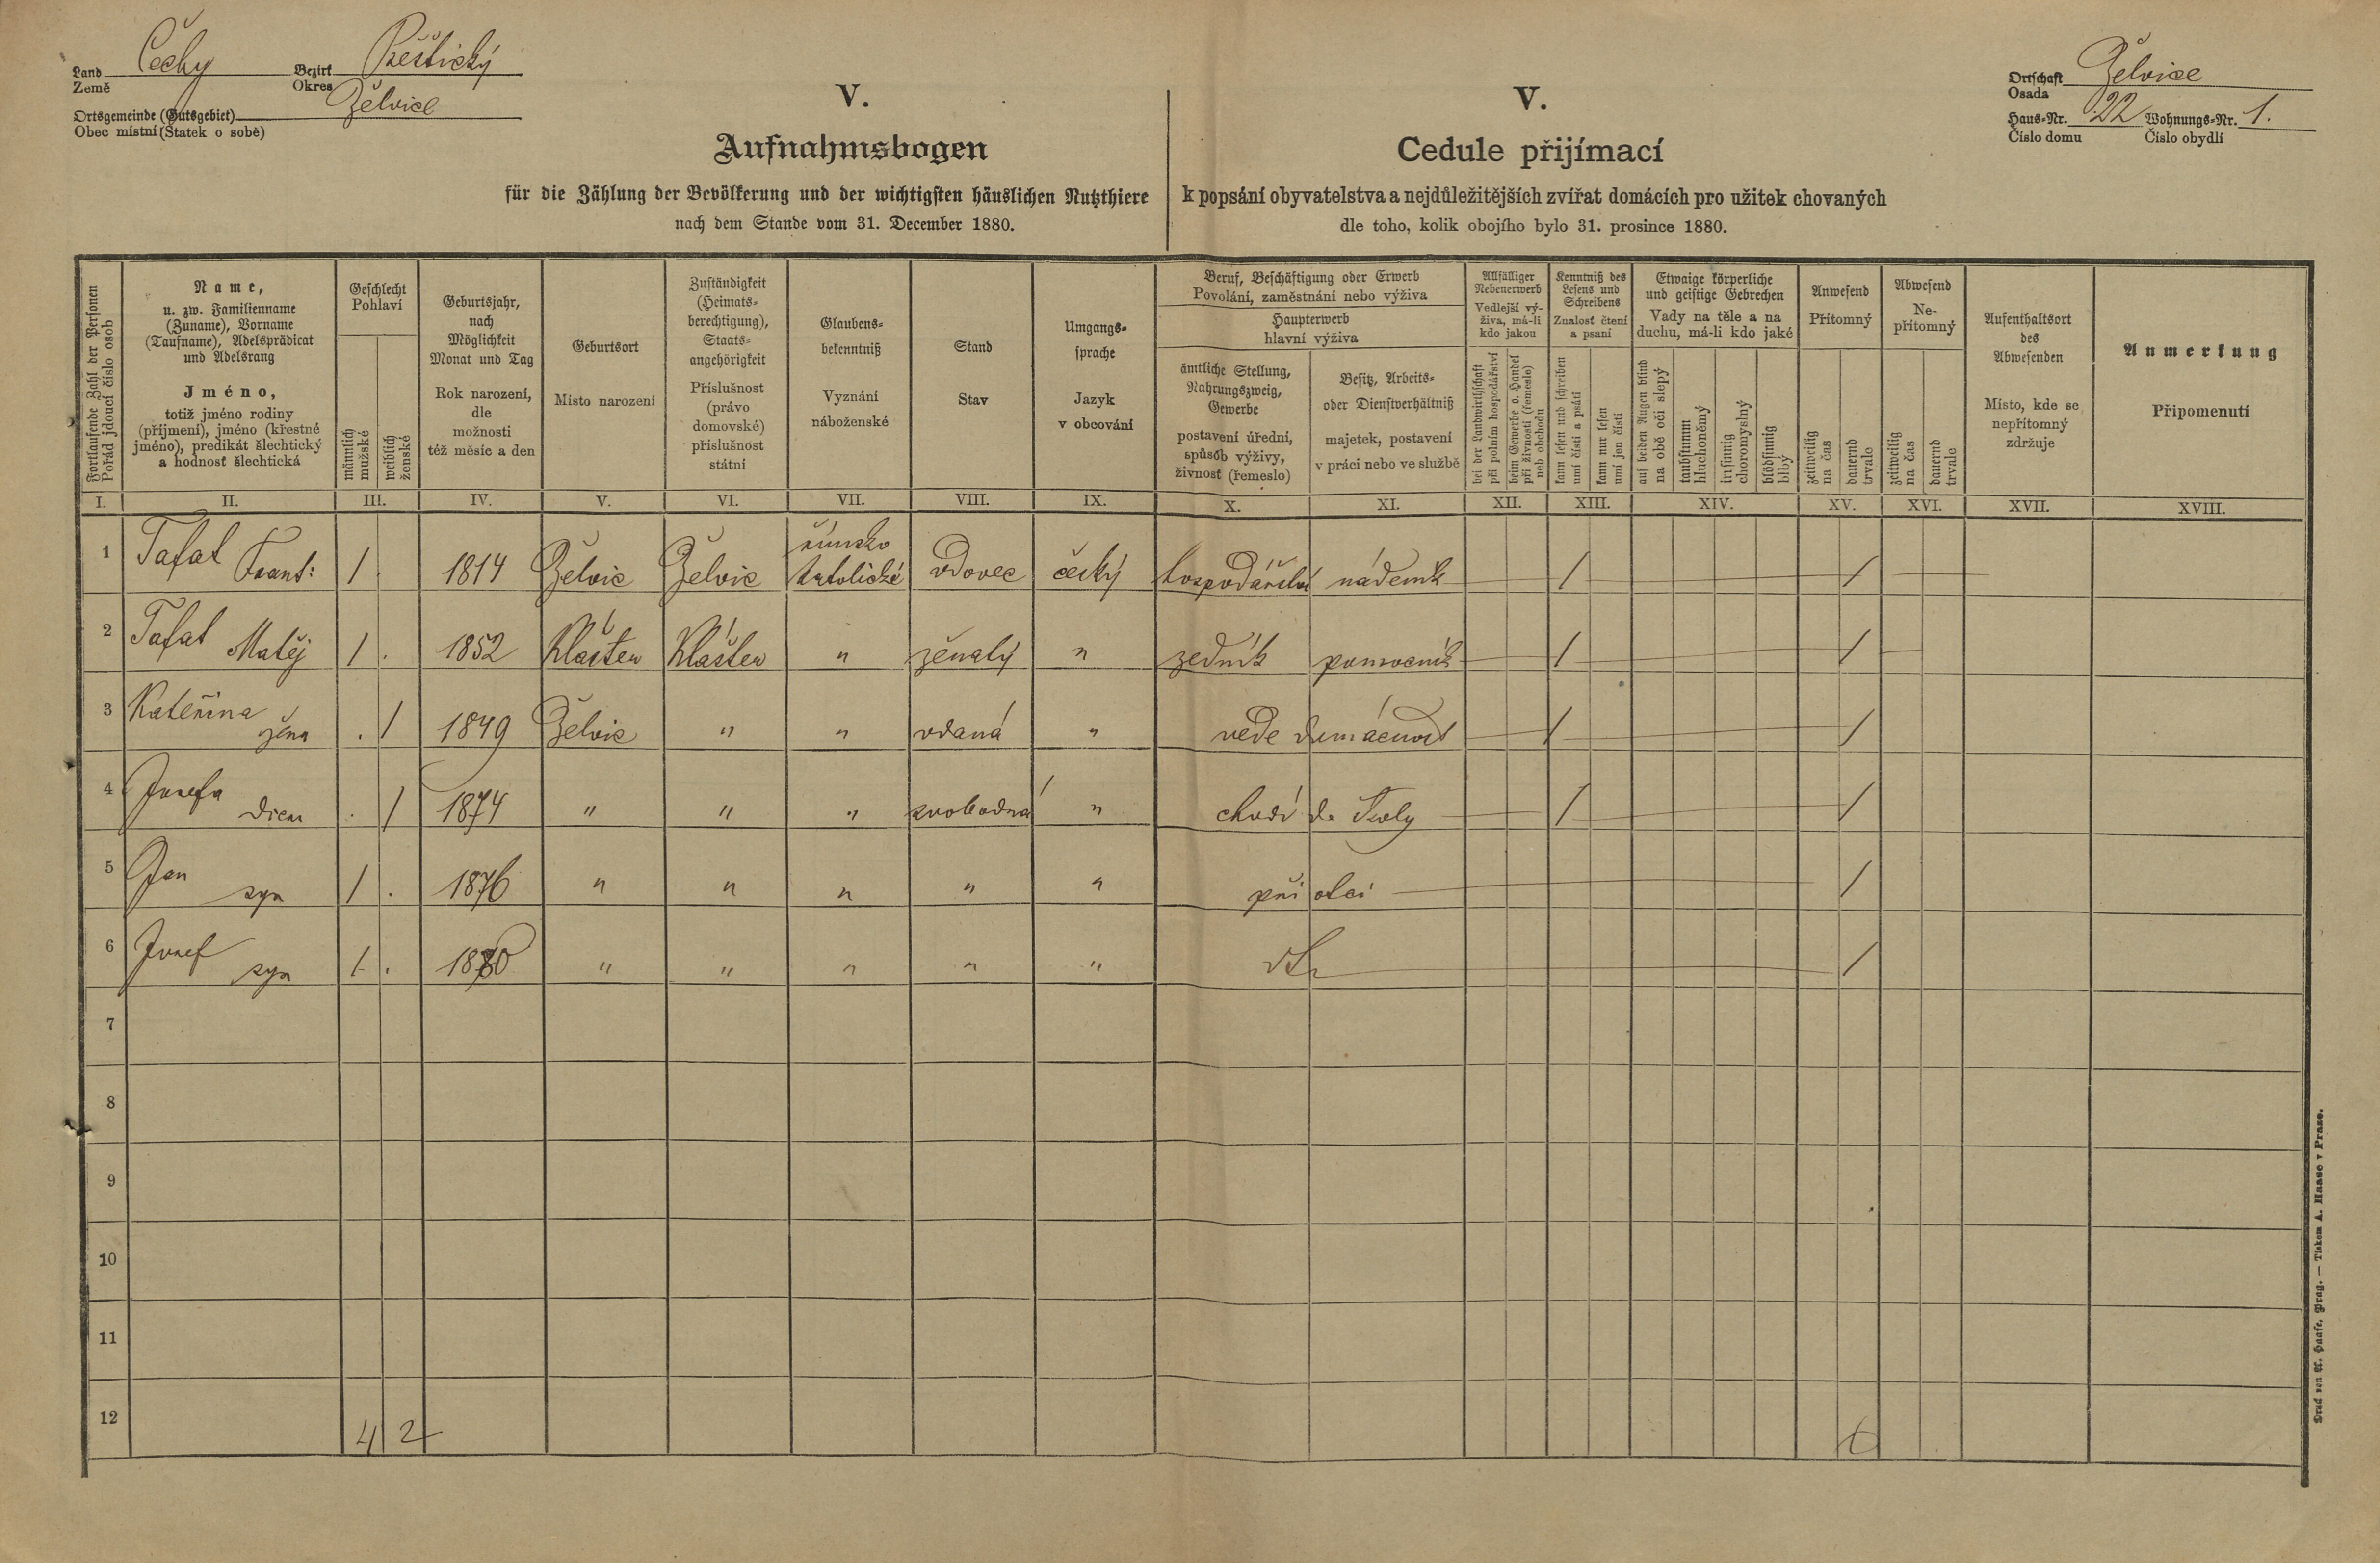 Land Čechy Bezirk Přeštický
Země Okres
Ortsgemeinde (Gutsgebiet) Želvice
Obec místní (Statek o sobě)
V.
Aufnahmsbogen
für die Zählung der Bevölkerung und der wichtigsten häuslichen Nutzthiere
nach dem Stande vom 31. December 1880.
V.
Cedule přijímací
k popsání obyvatelstva a nejdůležitějších zvířat domácích pro užitek chovaných
dle toho, kolik obojího bylo 31. prosince 1880.
Ortschaft Želvice
Osada
Haus-Nr. 22 Wohnungs-Nr. 1.
Číslo domu Číslo obydlí
Fortlaufende Zahl der Personen
Pořád jdoucí číslo osob
Name,
u. zw. Familienname
(Zuname), Vorname
(Taufname), Adelsprädicat
und Adelsrang
Jméno,
totiž jméno rodiny
(příjmení), jméno (křestné
jméno), predikát šlechtický
a hodnosť šlechtická
Geschlecht
Pohlaví
männlich
mužské
weiblich
ženské
Geburtsjahr,
nach
Möglichkeit
Monat und Tag
Rok narození,
dle
možnosti
též měsíc a den
Geburtsort
Místo narození
Zuständigkeit
(Heimats-
berechtigung),
Staats-
angehörigkeit
Příslušnost
(právo
domovské)
příslušnost
státní
Glaubens-
bekenntniß
Vyznání
náboženské
Stand
Stav
Umgangs-
sprache
Jazyk
v obcování
Beruf, Beschäftigung oder Erwerb
Povolání, zaměstnání nebo výživa
Haupterwerb
hlavní výživa
ämtliche Stellung,
Nahrungszweig,
Gewerbe
postavení úřední,
spůsob výživy,
živnosť (řemeslo)
Besitz, Arbeits-
oder Dienstverhältniß
majetek, postavení
v práci nebo ve službě
Allfälliger
Nebenerwerb
Vedlejší vý-
živa, má-li
kdo jakou
bei der Landwirthschaft
při polním hospodářství
beim Gewerbe o. Handel
při živnosti (řemeslo)
neb obchodu
Kenntniß des
Lesens und
Schreibens
Znalosť čtení
a psaní
kann lesen und schreiben
umí čísti a psáti
kann nur lesen
umí jen čísti
Etwaige körperliche
und geistige Gebrechen
Vady na těle a na
duchu, má-li kdo jaké
auf beiden Augen blind
na obě oči slepý
taubstumm
hluchoněmý
irrsinnig
choromyslný
blödsinnig
blbý
Anwesend
Přítomný
zeitweilig
na čas
dauernd
trvale
Abwesend
Ne-
přítomný
zeitweilig
na čas
dauernd
trvale
Aufenthaltsort
des
Abwesenden
Místo, kde se
nepřítomný
zdržuje
Anmerkung
Připomenutí
I. II. III. IV. V. VI. VII. VIII. IX. X. XI. XII. XIII. XIV. XV. XVI. XVII. XVIII.
1 Tafat Frant: / . 1814 Želvic Želvic římsko katolické vdovec český hospodářství nádeník / /
2 Tafat Matěj / . 1852 Klášter Klášter " ženatý " zedník pomocník / /
3 Kateřina žena . / 1849 Želvic " " vdaná " vede domácnost / /
4 Josefa dcera . / 1874 " " " svobodná " chodí do školy / /
5 Jan syn / . 1876 " " " " " při otci /
6 Josef syn / . 1880 " " " " " /
7
8
9
10
11
12 4 2 6
Druck von A. Haase, Prag. — Tiskem A. Haase v Praze.